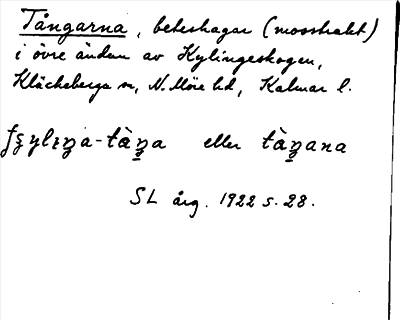 Tångarna, beteshagar (mosstrakt)
i övre ändan av Kylingeskogen,
Kläckeberga sn, N. Möre hd, Kalmar l.
-tàŋa eller tàŋana
SL årg. 1922 s. 28.